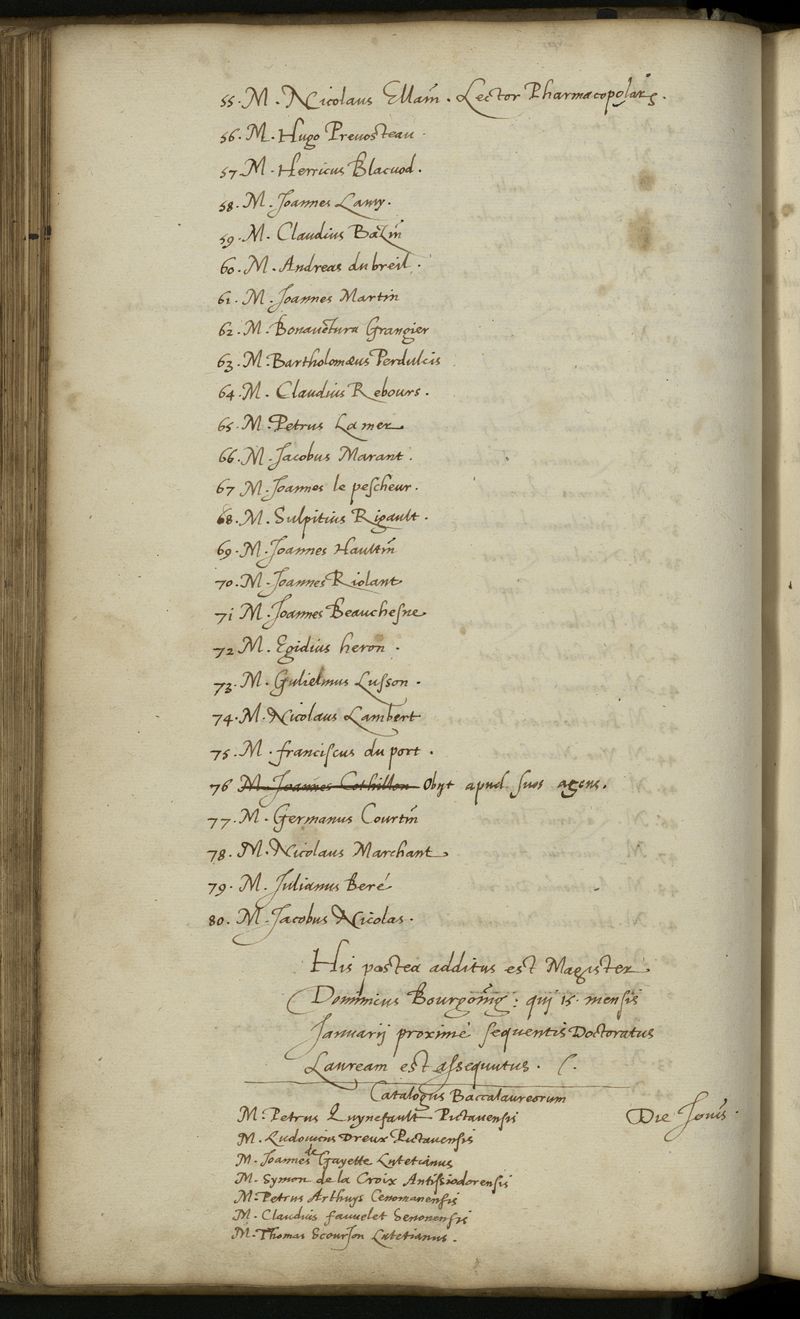 55. M. Nicolaus Ellain. Lector Pharmacopolar̃.
56. M. Hugo Prevosteau.
57. M. Henricus Blacuod.
58. M. Joannes Lamy.
59. M. Claudius Bazin
60. M. Andreas du breil.
61. M. Joannes Martin
62. M. Bonavētura Grangier
63. M. Bartholomæus Perdulcis
64. M. Claudius Rebours.
65. M. Petrus Lamer
66. M. Jacobus Marant.
67 M. Joannes le pescheur.
68. M. Sulpitius Rigault.
69. M. Joannes Haultin
70. M. Joannes Riolant
71 M. Joannes Beauchesne
72 M. Egidius heron.
73. M. Gulielmus Lusson.
74. M. Nicolaus Lambert
75. M. franciscus du port.
76 M. Joannes Cothillon Obijt apud suos agens.
77. M. Germanus Courtin
78. M. Nicolaus Marchant
79. M. Julianus Beré
80. M. Jacobus Nicolas.
His postea additus est Magister
Dominicus Bourgoing: qui 15. mensis
Januarij proximé sequentis Doctoratus
Lauream est assequutus.
Catalogus Baccalaureorum
M. Petrus Quynefault Pictavensis Die Jovis.
M. Ludovicus Dreux Pictavensis
M. Joannes de Gayette Lutetianus
M. Symon de la Croix Antissiodorensis
M. Petrus Arthuys Cenomanensis
M. Claudius fauvelet Senonensis
M. Thomas Scourjon Lutetianus.